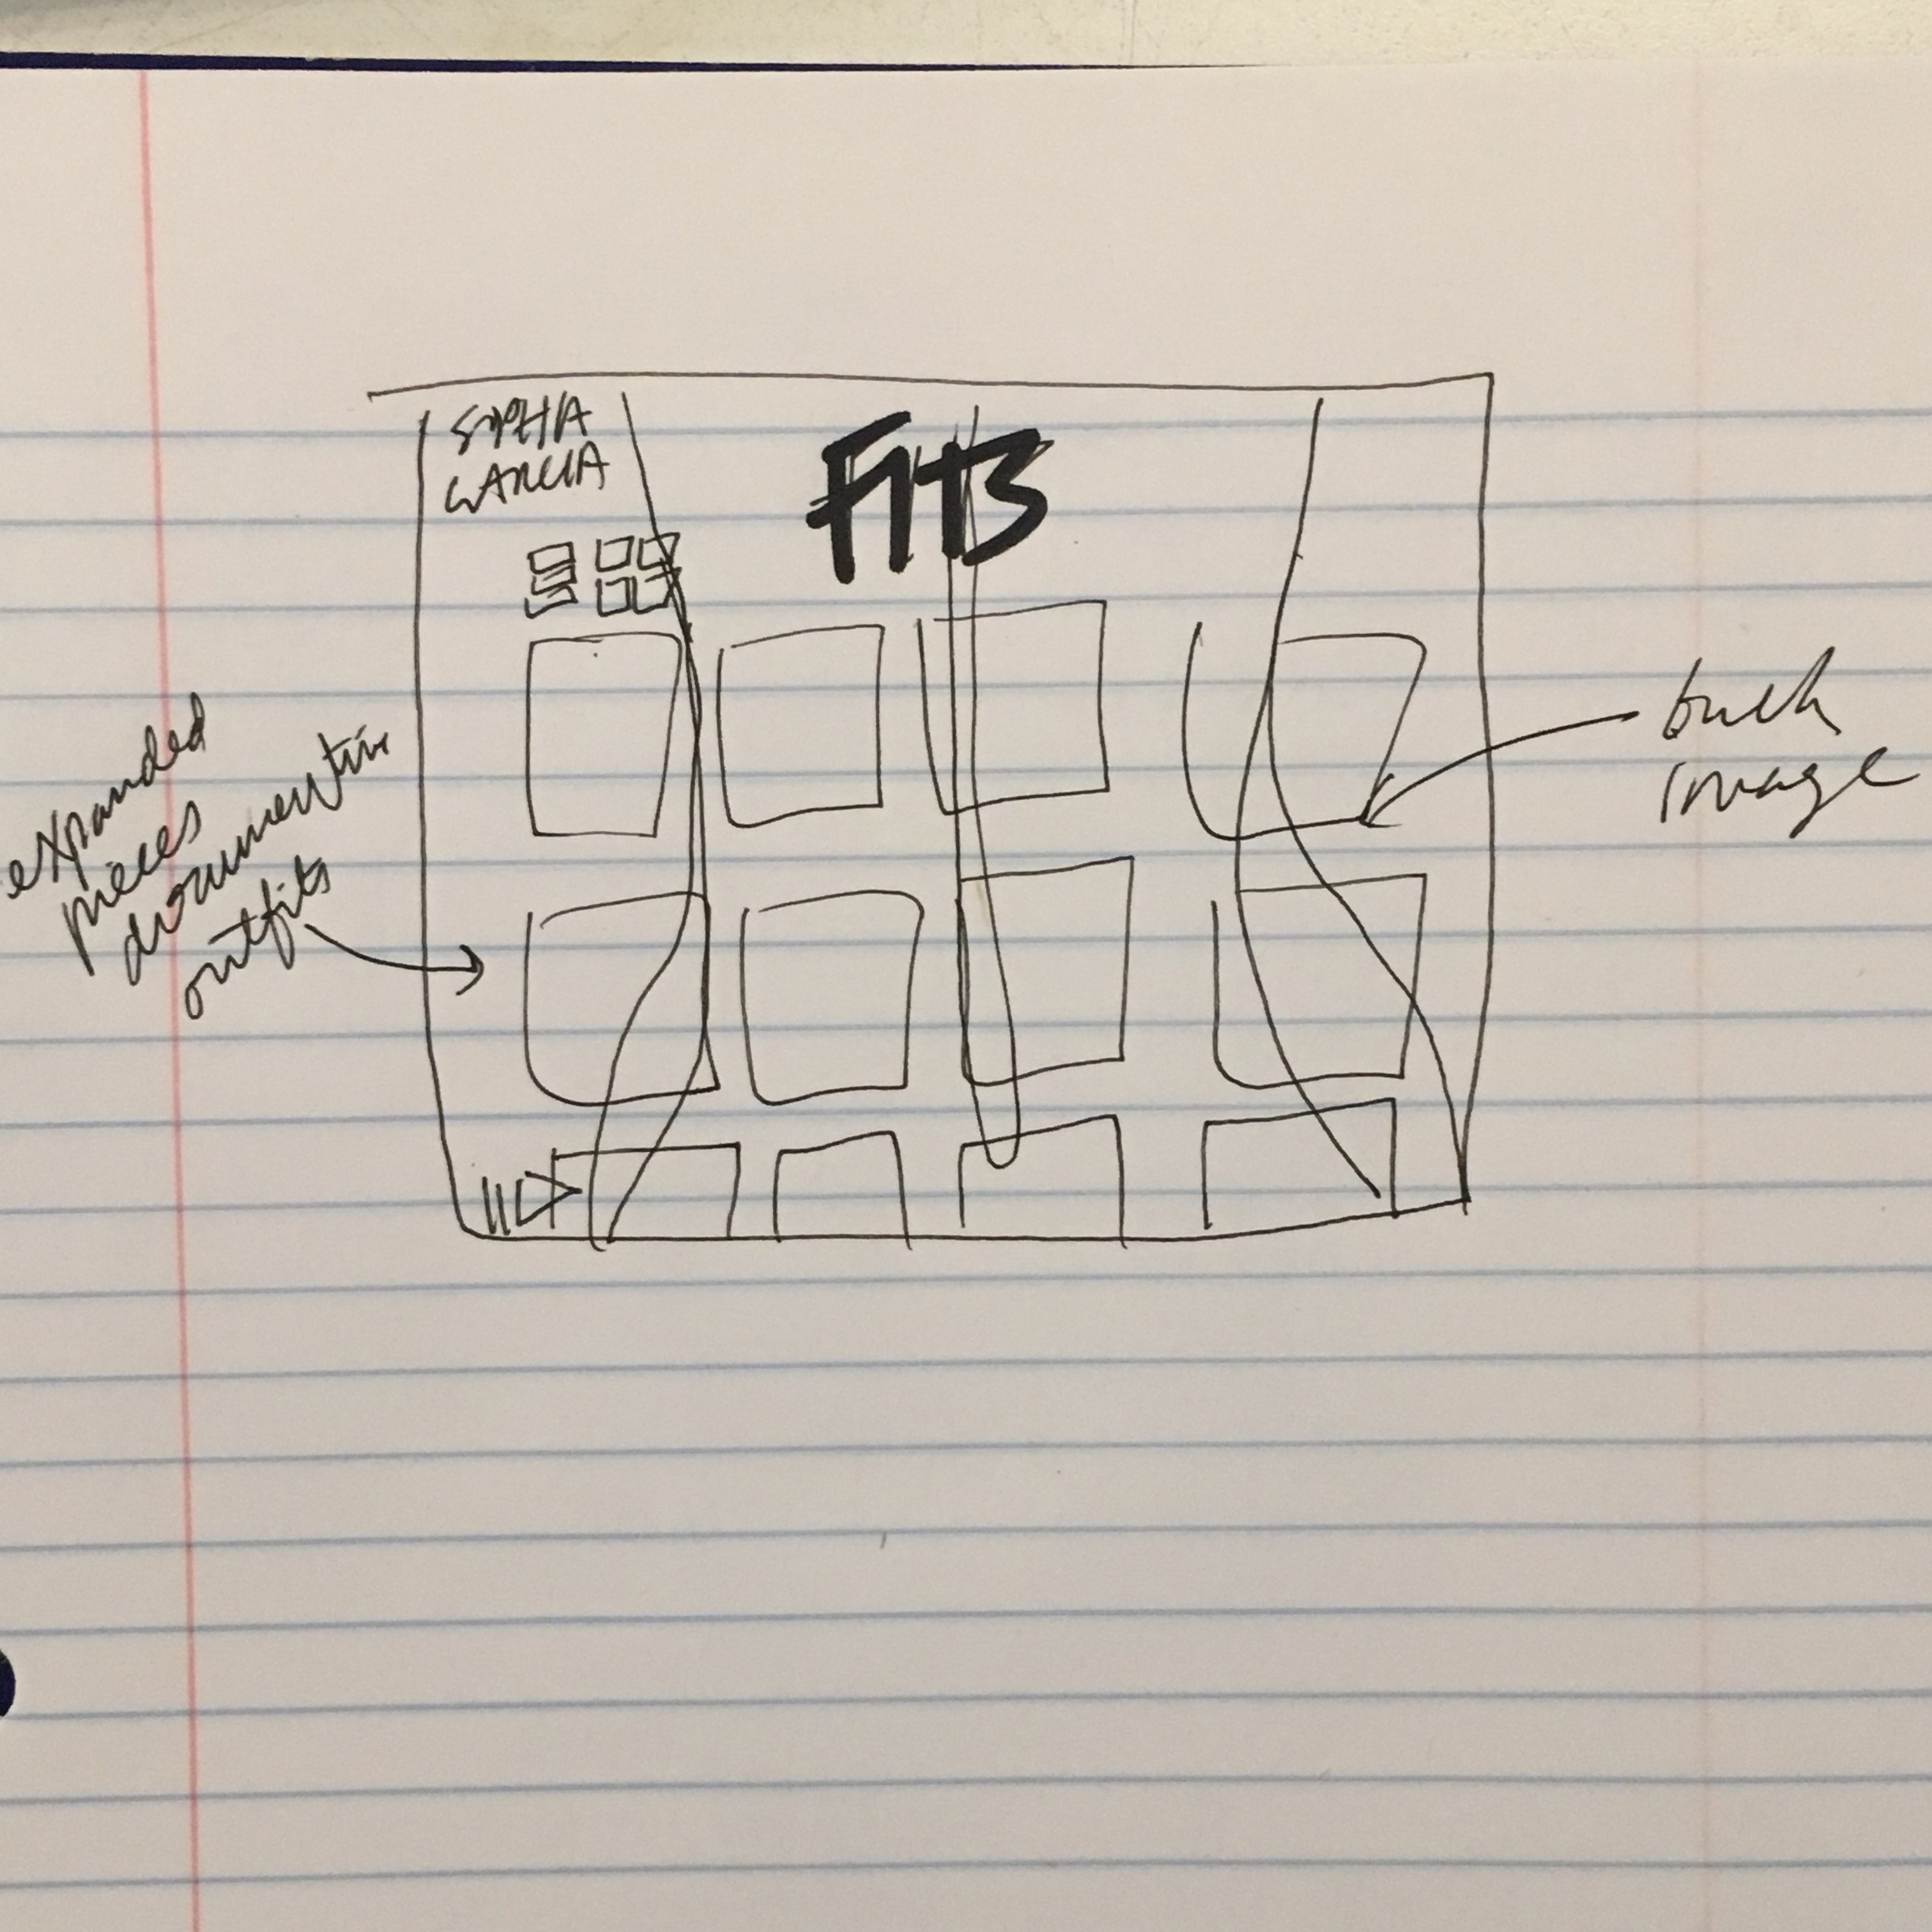 SOPHIA
GARCIA
FITS
expanded
pieces
documenting
outfits
image